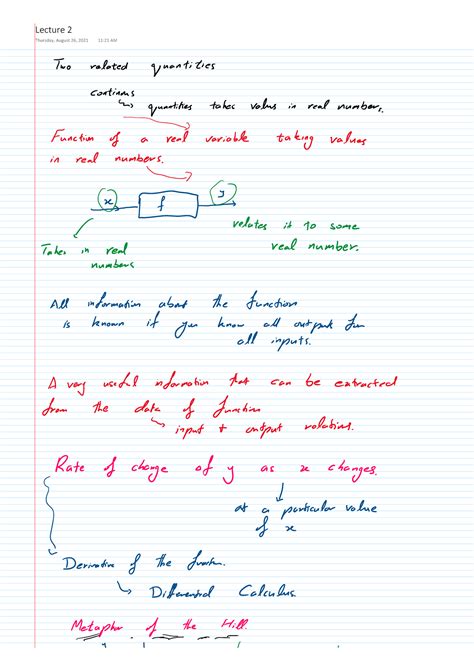 Lecture 2
Thursday, August 26, 2021 11:23 AM
Two related quantities
continus
quantities takes values in real numbers.
Function of a real variable taking values
in real numbers.
x f y
relates it to some
real number.
Takes in real
numbers
All information about the function
is known if you know all output for
all inputs.
A very useful information that can be extracted
from the data of function
input + output relations.
Rate of change of y as x changes.
at a particular value
of x
Derivative of the function.
Differential Calculus
Metaphor of the Hill.